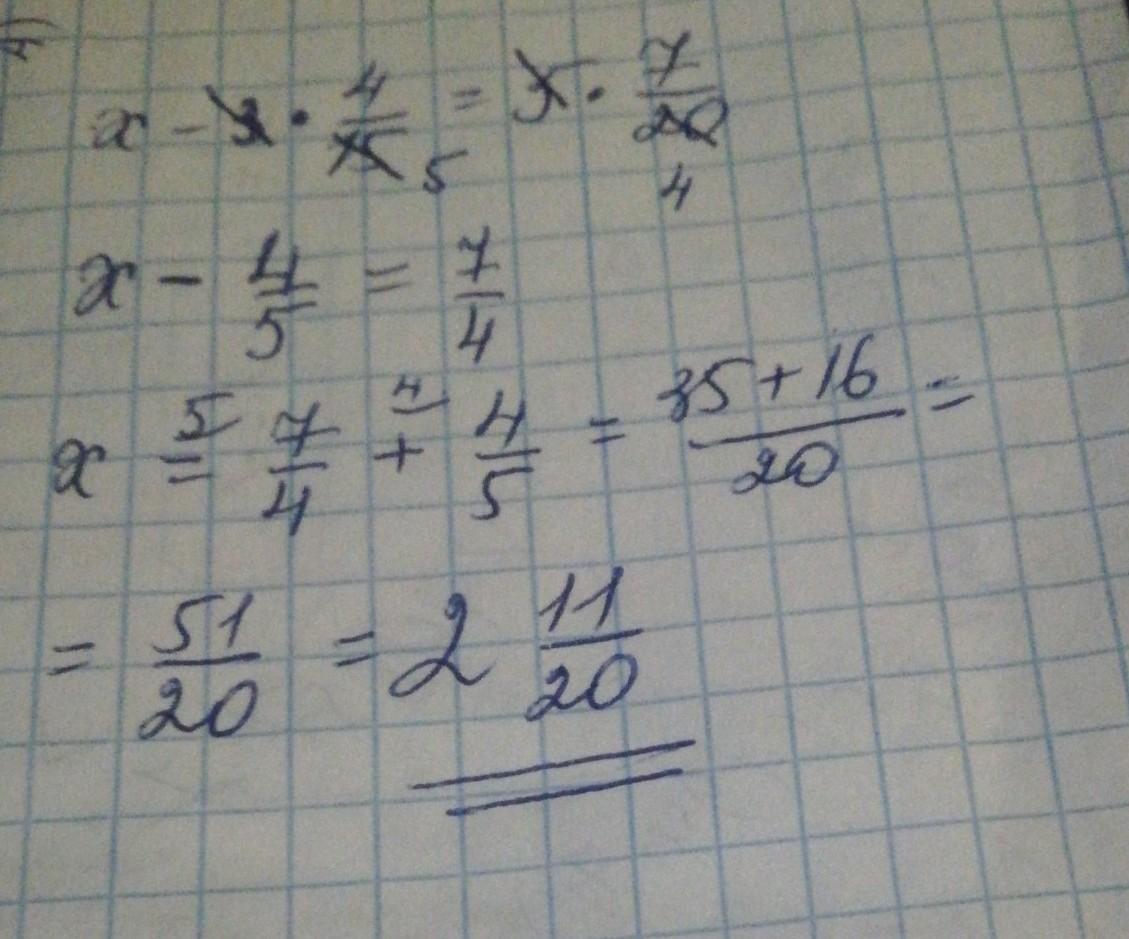 x - 3 · 4/15 5 = 5 · 7/20 4
x - 4/5 = 7/4
x = 5 7/4 + 4 4/5 = 35+16/20 =
= 51/20 = 2 11/20